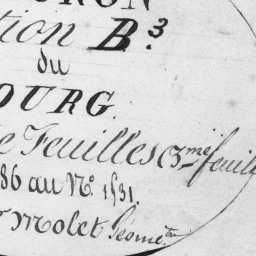 RON
tion B.3
du
OURG
e Feuilles (3me feuill
86 au No. 1131
Molet Géomètre